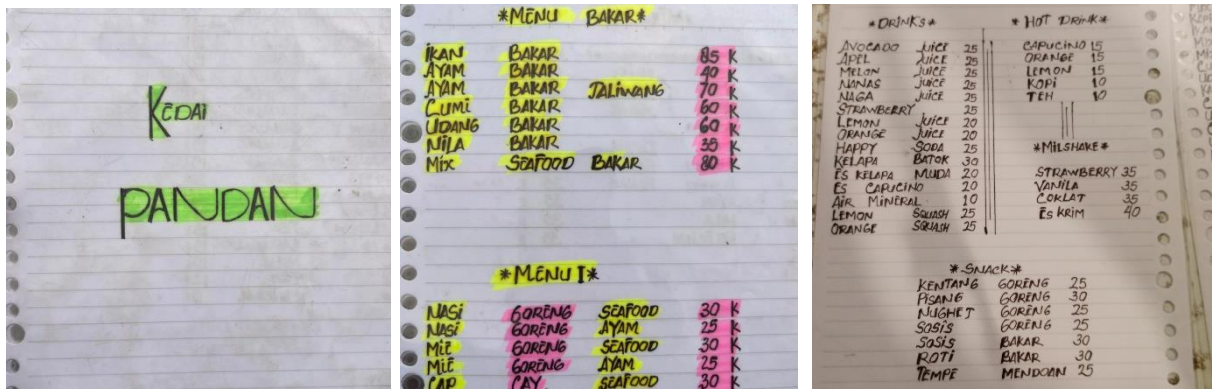 KEDAI
PANDAN
*MENU BAKAR*
IKAN BAKAR 85 K
AYAM BAKAR 40 K
AYAM BAKAR TALIWANG 70 K
CUMI BAKAR 60 K
UDANG BAKAR 60 K
NILA BAKAR 35 K
MIX SEAFOOD BAKAR 80 K
*MENU I*
NASI GORENG SEAFOOD 30 K
NASI GORENG AYAM 25 K
MIE GORENG SEAFOOD 30 K
MIE GORENG AYAM 25 K
CAP CAY SEAFOOD 30 K
*DRINKS*
AVOCADO JUICE 25
APEL JUICE 25
MELON JUICE 25
NANAS JUICE 25
NAGA JUICE 25
STRAWBERRY 25
LEMON JUICE 20
ORANGE JUICE 20
HAPPY SODA 25
KELAPA BATOK 30
ES KELAPA MUDA 20
ES CAPUCINO 20
AIR MINERAL 10
LEMON SQUASH 25
ORANGE SQUASH 25
*HOT DRINK*
CAPUCINO 15
ORANGE 15
LEMON 15
KOPI 10
TEH 10
*MILSHAKE*
STRAWBERRY 35
VANILA 35
COKLAT 35
ES KRIM 40
*SNACK*
KENTANG GORENG 25
PISANG GORENG 30
NUGHET GORENG 25
SOSIS GORENG 25
SOSIS BAKAR 30
ROTI BAKAR 30
TEMPE MENDOAN 25